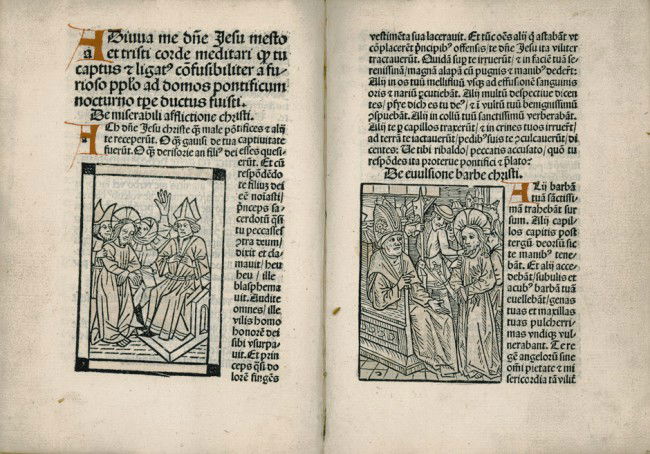 ADiuua me dñe Jesu mesto
a et tristi corde meditari qͥ tu
captus & ligatꝰ cōfusibiliter a fu/
rioso ppľo ad domos pontificum
nocturno tꝑe ductus fuisti.
De miserabili afflictione christi.
ACh dñe Jesu christe qͣ male põtifices & alij
te receperut. O qͣ gauisi de tua captiuitate
fuerūt. O qͣ derisorie an filiꝰ dei esses quesi-
erūt. Et cū
respōdēdo
te filiuȝ dei
eē noīasti/
pͥnceps sa-
cerdotū qͣsi
tu peccasses
ɔtra deum/
dixit et cla-
mauit/ heu
heu / ille
blasphema
uit. Audite
omnes/ ille
vilis homo
honorē dei
sibi vsurpa-
uit. Et prin-
ceps qͣsi do
lorē fingēs
vestimēta sua lacerauit. Et tūc oēs alij ꝗ astabāt vt
cōplacerēt pͥncipibꝰ offensis/te dñe Jesu ita viliter
tractauerūt. Quidā suꝑ te irruerūt/ & in faciē tuā se-
renissimā/ magnā alapā cū pugnis & manibꝰ dederūt:
Alij in os tuū mellifluū vsqꝫ ad effusionē sanguinis
oris & nariū ꝑcutiebāt. Alij multū despectiue dicen
tes/ ꝓphe dic̄ es tu deꝰ/ & ī vultū tuū benignissimū
ɔspuebāt. Alij in collū tuū sanctissimū verberabāt.
Alij te ꝑ capillos traxerūt/ & in crines tuos irruēt/
ad terrā te iactauerūt/ pedibꝰ suis te ɔculcauerūt/ di
centes: Ue tibi ribaldo/ peccatis accusato/ quō tu
respōdes ita proterue pontifici & plato:
De euulsione barbe christi.
ALij barbā
tuā sāctissi-
mā trahebāt sur
sum. Alij capil-
los capitis post
tergū deorsū sic
te manibꝰ tene-
bāt. Et alij acce-
debāt/ subulis et
acubꝰ barbā tuā
euellebāt/ genas
tuas et maxillas
tuas pulcherri-
mas vndiqꝫ vul-
nerabant. Te re
gē angelorū sine
om̄i pietate & mi
sericordia tā vilit̄